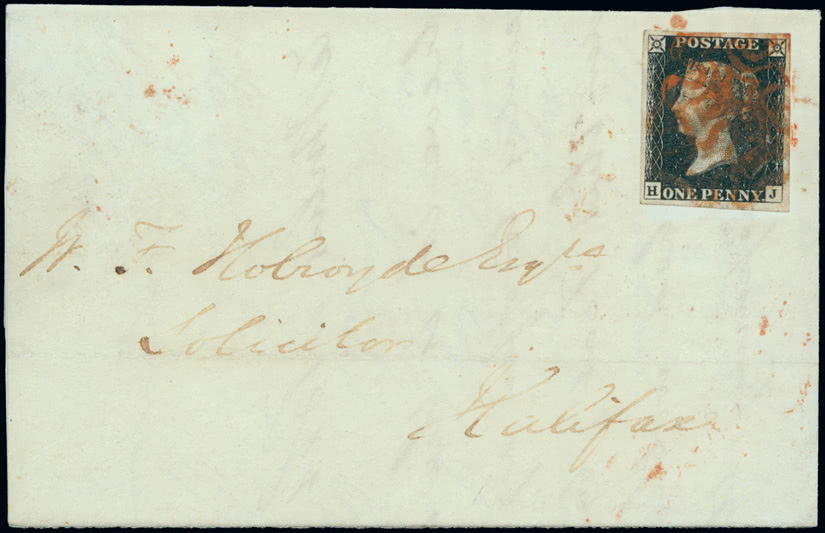 POSTAGE
H ONE PENNY J
W. F. Holroyde Esqre
Solicitor
Halifax